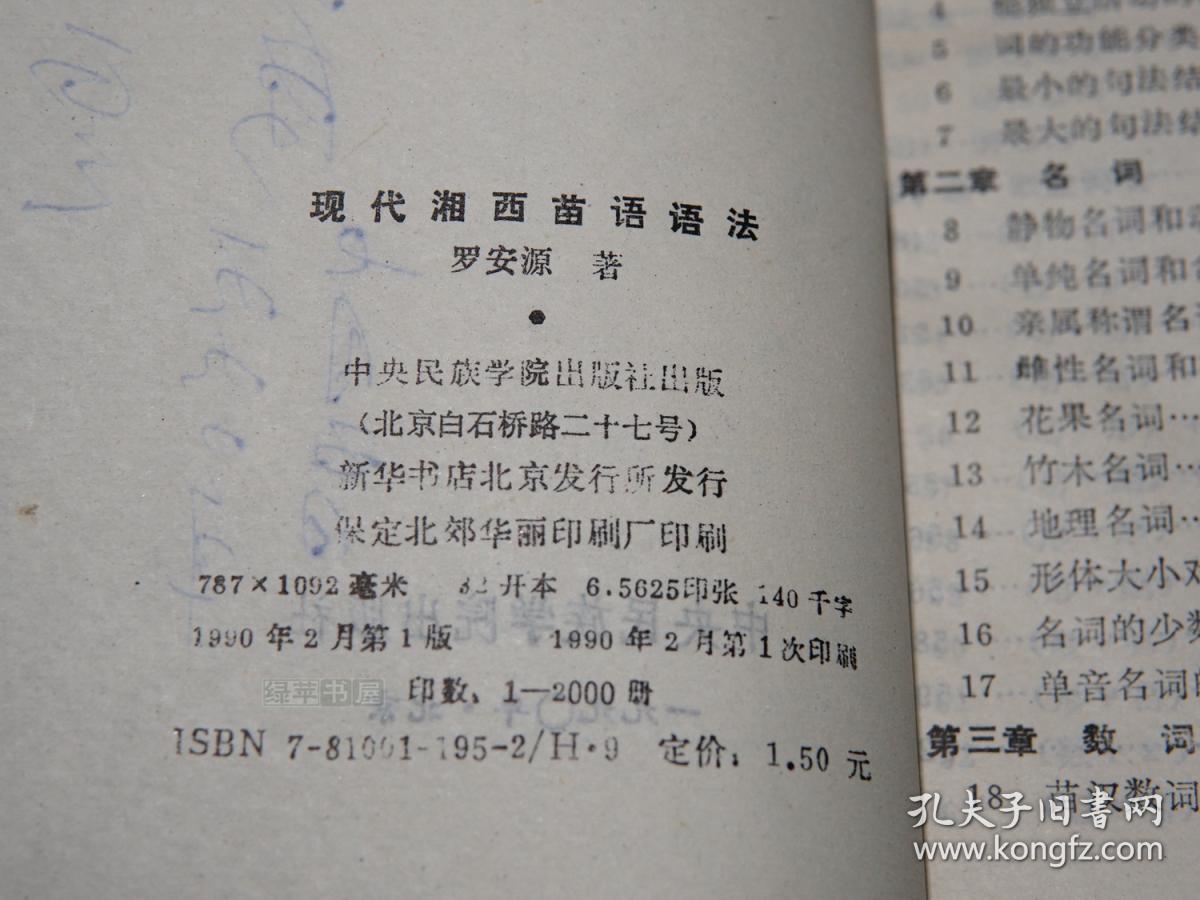 现代湘西苗语语法
罗安源 著
中央民族学院出版社出版
(北京白石桥路二十七号)
新华书店北京发行所发行
保定北郊华丽印刷厂印刷
787×1092毫米 32开本 6.5625印张 140千字
1990年2月第1版 1990年2月第1次印刷
印数：1—2000册
ISBN 7-81001-195-2/H·9 定价：1.50元
绿苹书屋
4
5 词的功能分类
6 最小的句法结
7 最大的句法结
第二章 名 词
8 静物名词和
9 单纯名词和
10 亲属称谓名
11 雌性名词和
12 花果名词…
13 竹木名词…
14 地理名词…
15 形体大小
16 名词的少数
17 单音名词
第三章 数 词
18 苗汉数词
孔夫子旧书网
www.kongfz.com